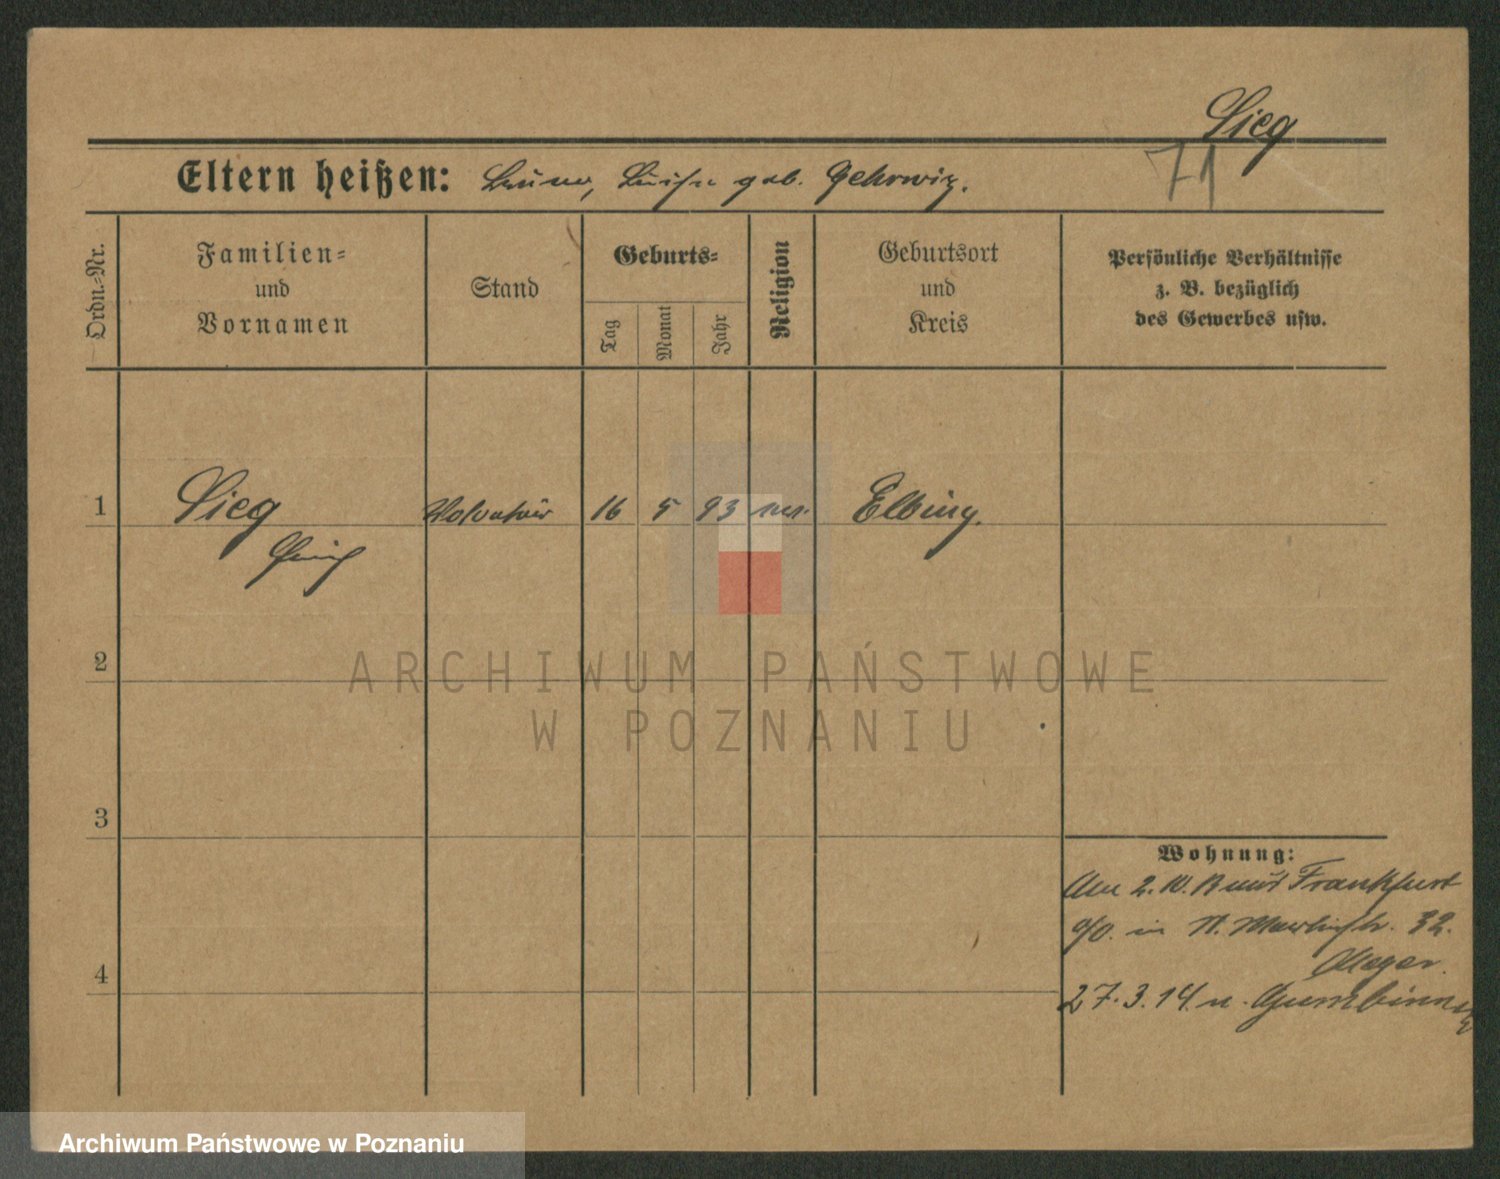 Sieg
71
Eltern heißen: Bruno, Luise geb. Gehrwig.
Ordn.-Nr.
Familien-
und
Vornamen
Stand
Geburts-
Tag
Monat
Jahr
Religion
Geburtsort
und
Kreis
Persönliche Verhältnisse
z. B. bezüglich
des Gewerbes usw.
1
Sieg
16 5 93
Elbing.
2
3
4
Wohnung:
Am 2. 10. 13 aus Frankfurt
a/O. in St. Martinstr. 32.
27.3.14. n. Gumbinnen
ARCHIWUM PAŃSTWOWE
W POZNANIU
Archiwum Państwowe w Poznaniu